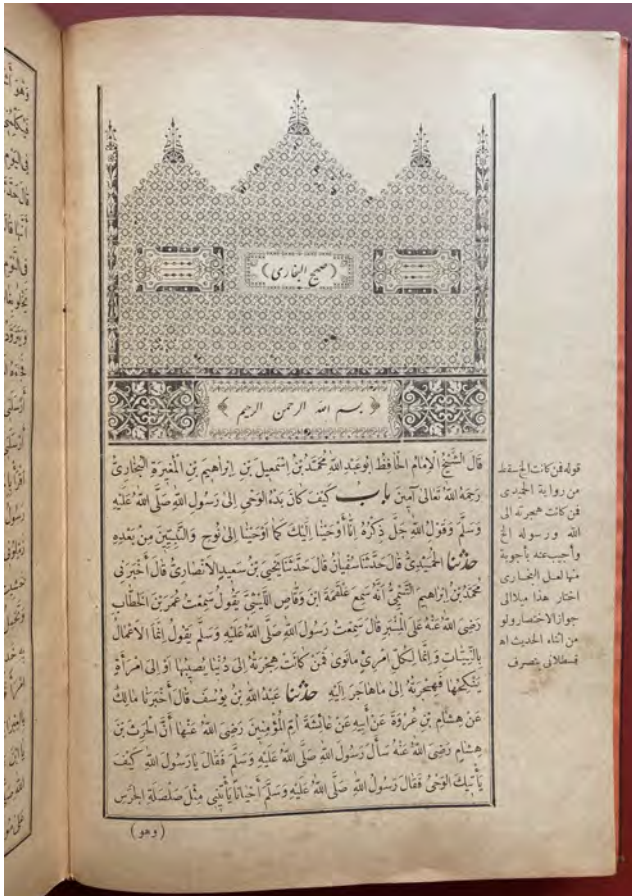 (صحيح البخارى)
بسم الله الرحمن الرحيم
قَالَ الشَّيْخُ الْإِمَامُ الْحَافِظُ أَبُو عَبْدِ اللّٰهِ مُحَمَّدُ بْنُ اِسْمٰعِيلَ بْنِ اِبْرٰاهِيمَ بْنِ الْمُغِيرَةِ الْبُخَارِىُّ
رَحِمَهُ اللّٰهُ تَعَالٰى آمِينَ بَابُ كَيْفَ كَانَ بَدْءُ الْوَحْىِ اِلٰى رَسُولِ اللّٰهِ صَلَّى اللّٰهُ عَلَيْهِ
وَسَلَّمَ وَقَوْلُ اللّٰهِ جَلَّ ذِكْرُهُ اِنَّا اَوْحَيْنَا اِلَيْكَ كَمَا اَوْحَيْنَا اِلٰى نُوحٍ وَالنَّبِيِّينَ مِنْ بَعْدِهِ
حَدَّثَنَا الْحُمَيْدِىُّ قَالَ حَدَّثَنَا سُفْيَانُ قَالَ حَدَّثَنَا يَحْيَى بْنُ سَعِيدٍ الْاَنْصَارِىُّ قَالَ أَخْبَرَنِى
مُحَمَّدُ بْنُ اِبْرَاهِيمَ التَّيْمِىُّ اَنَّهُ سَمِعَ عَلْقَمَةَ ابْنَ وَقَّاصٍ اللَّيْثِىَّ يَقُولُ سَمِعْتُ عُمَرَ بْنَ الْخَطَّابِ
رَضِىَ اللّٰهُ عَنْهُ عَلَى الْمِنْبَرِ قَالَ سَمِعْتُ رَسُولَ اللّٰهِ صَلَّى اللّٰهُ عَلَيْهِ وَسَلَّمَ يَقُولُ اِنَّمَا الْاَعْمَالُ
بِالنِّيَّاتِ وَاِنَّمَا لِكُلِّ امْرِئٍ مَانَوٰى فَمَنْ كَانَتْ هِجْرَتُهُ اِلٰى دُنْيَا يُصِيبُهَا اَوْ اِلَى امْرَأَةٍ
يَنْكِحُهَا فَهِجْرَتُهُ اِلٰى مَاهَاجَرَ اِلَيْهِ حَدَّثَنَا عَبْدُ اللّٰهِ بْنُ يُوسُفَ قَالَ اَخْبَرَنَا مَالِكٌ
عَنْ هِشَامِ بْنِ عُرْوَةَ عَنْ أَبِيهِ عَنْ عَائِشَةَ اُمِّ الْمُؤْمِنِينَ رَضِىَ اللّٰهُ عَنْهَا أَنَّ الْحَرِثَ بْنَ
هِشَامٍ رَضِىَ اللّٰهُ عَنْهُ سَأَلَ رَسُولَ اللّٰهِ صَلَّى اللّٰهُ عَلَيْهِ وَسَلَّمَ فَقَالَ يَارَسُولَ اللّٰهِ كَيْفَ
يَأْتِيكَ الْوَحْىُ فَقَالَ رَسُولُ اللّٰهِ صَلَّى اللّٰهُ عَلَيْهِ وَسَلَّمَ اَحْيَانًا يَأْتِينِى مِثْلَ صَلْصَلَةِ الْجَرَسِ
(وهو)
قوله فمن كانت الخ سقط
من رواية الحميدى
فمن كانت هجرته الى
الله ورسوله الخ
وأجيب عنه بأجوبة
منها لعل البخارى
اختار هذا ميلا الى
جواز الاختصار ولو
من اثناء الحديث اه
قسطلانى بتصرف